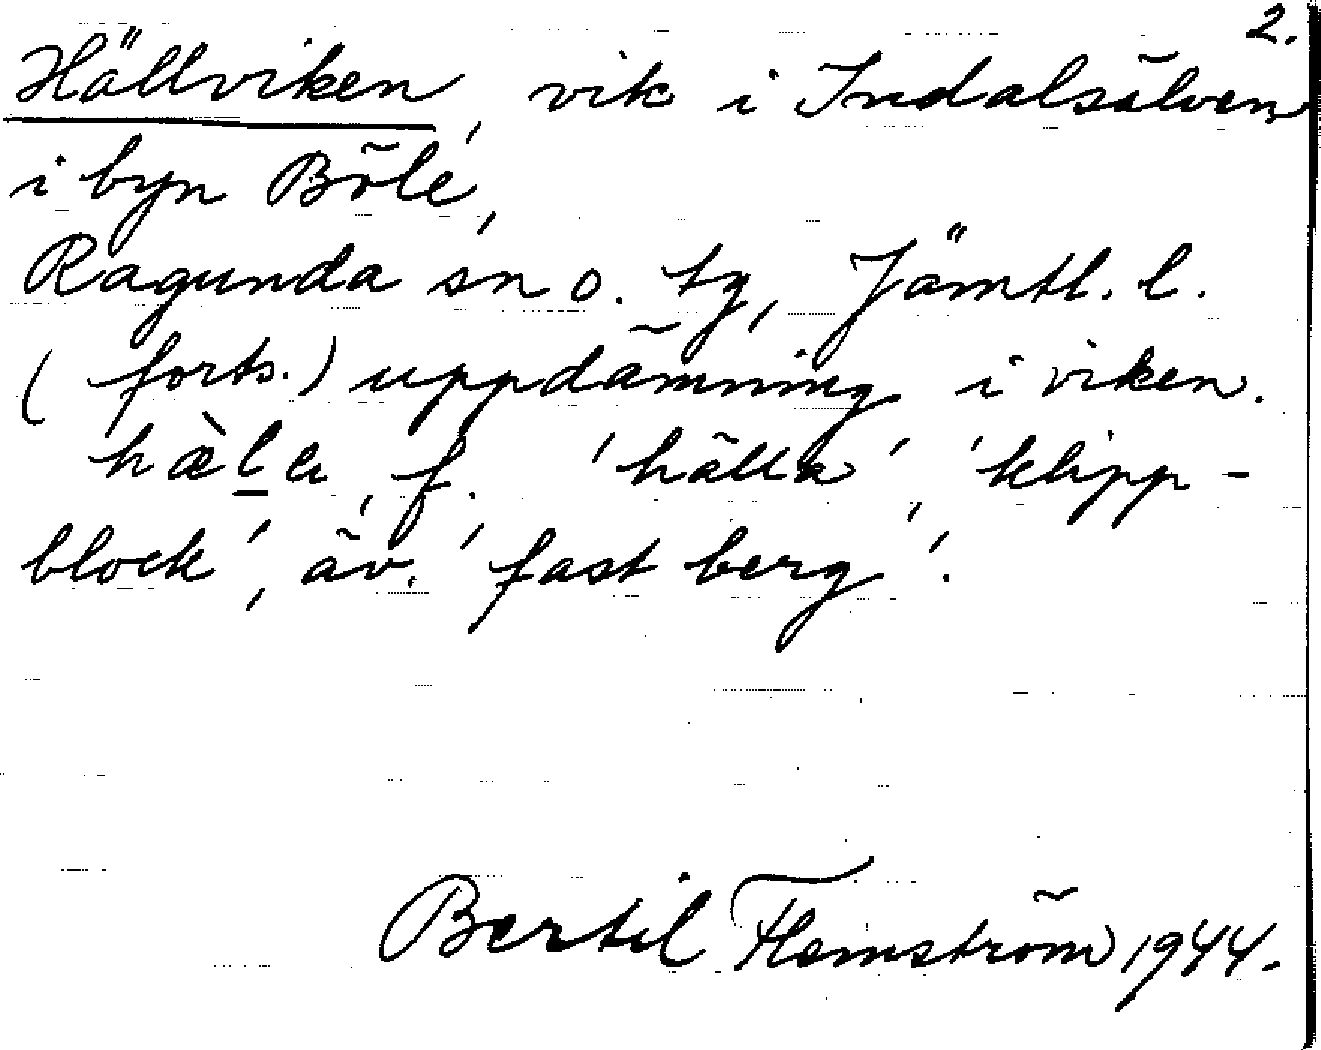 2.
Hällviken, vik i Indalsälven
i byn Böle,
Ragunda sn o. tg, Jämtl. l.
(forts.) uppdämning i viken.
hæ̀la, f. 'hälla', 'klipp-
block', äv. 'fast berg'.
Bertil Flemström 1944.